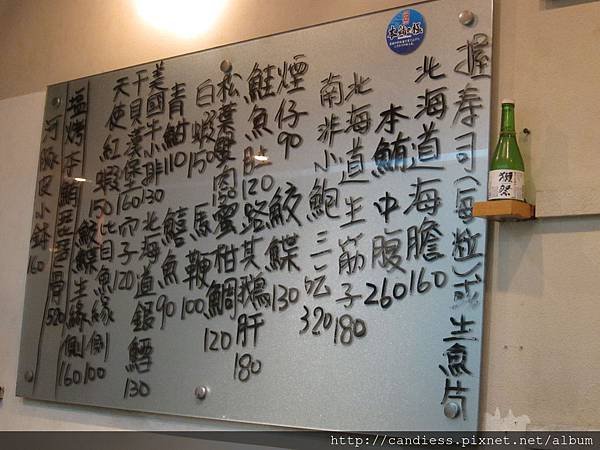 握壽司(每粒)或生魚片
北海道海膽160
本鮪中腹260
北海道生筋子180
南非小鮑三吃320
煙仔90 鮫鰈130
鮭魚肚120 路易其鵝肝180
松葉蟹肉150 蜜柑鯛120
白蝦150 馬鞭100
青魽110 鱚魚90
美國牛小排130 北海道銀鱈130
干貝漢堡160 穴子120
天使紅蝦150 比目魚緣側100
鮫鰈生緣側160
塩烤本鮪 骨320
河豚皮小缽160
獺祭
http://candiess.pixnet.net/album